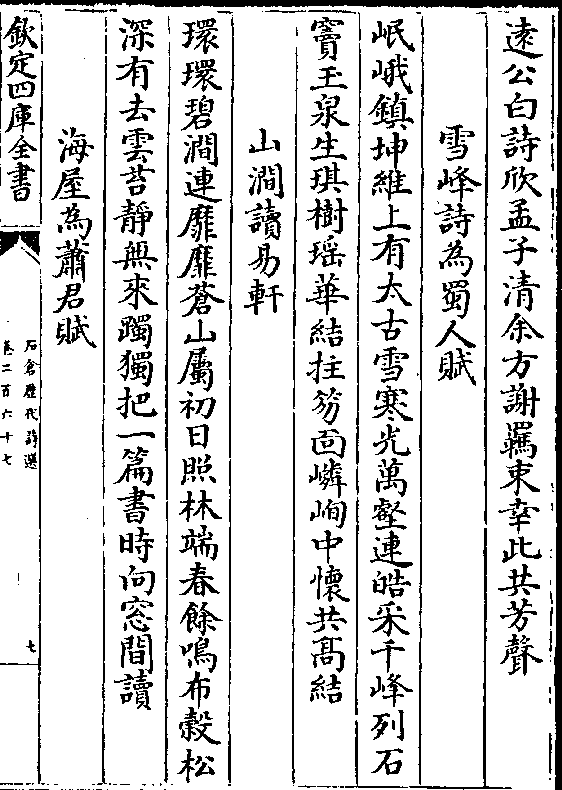 遠公白詩欣孟子清余方謝羈束幸此共芳聲
雪峰詩為蜀人賦
岷峨鎮坤維上有太古雪寒光萬壑連皓采千峰列石
竇玉泉生琪樹瑶華結拄笏面嶙峋中懷共髙結
山澗讀易軒
環環碧澗連靡靡蒼山屬初日照林端春餘鳴布榖松
深有去雲苔靜無來躅獨把一篇書時向窓間讀
海屋為蕭君賦
欽定四庫全書
石倉歴代詩選
卷二百六十七
七